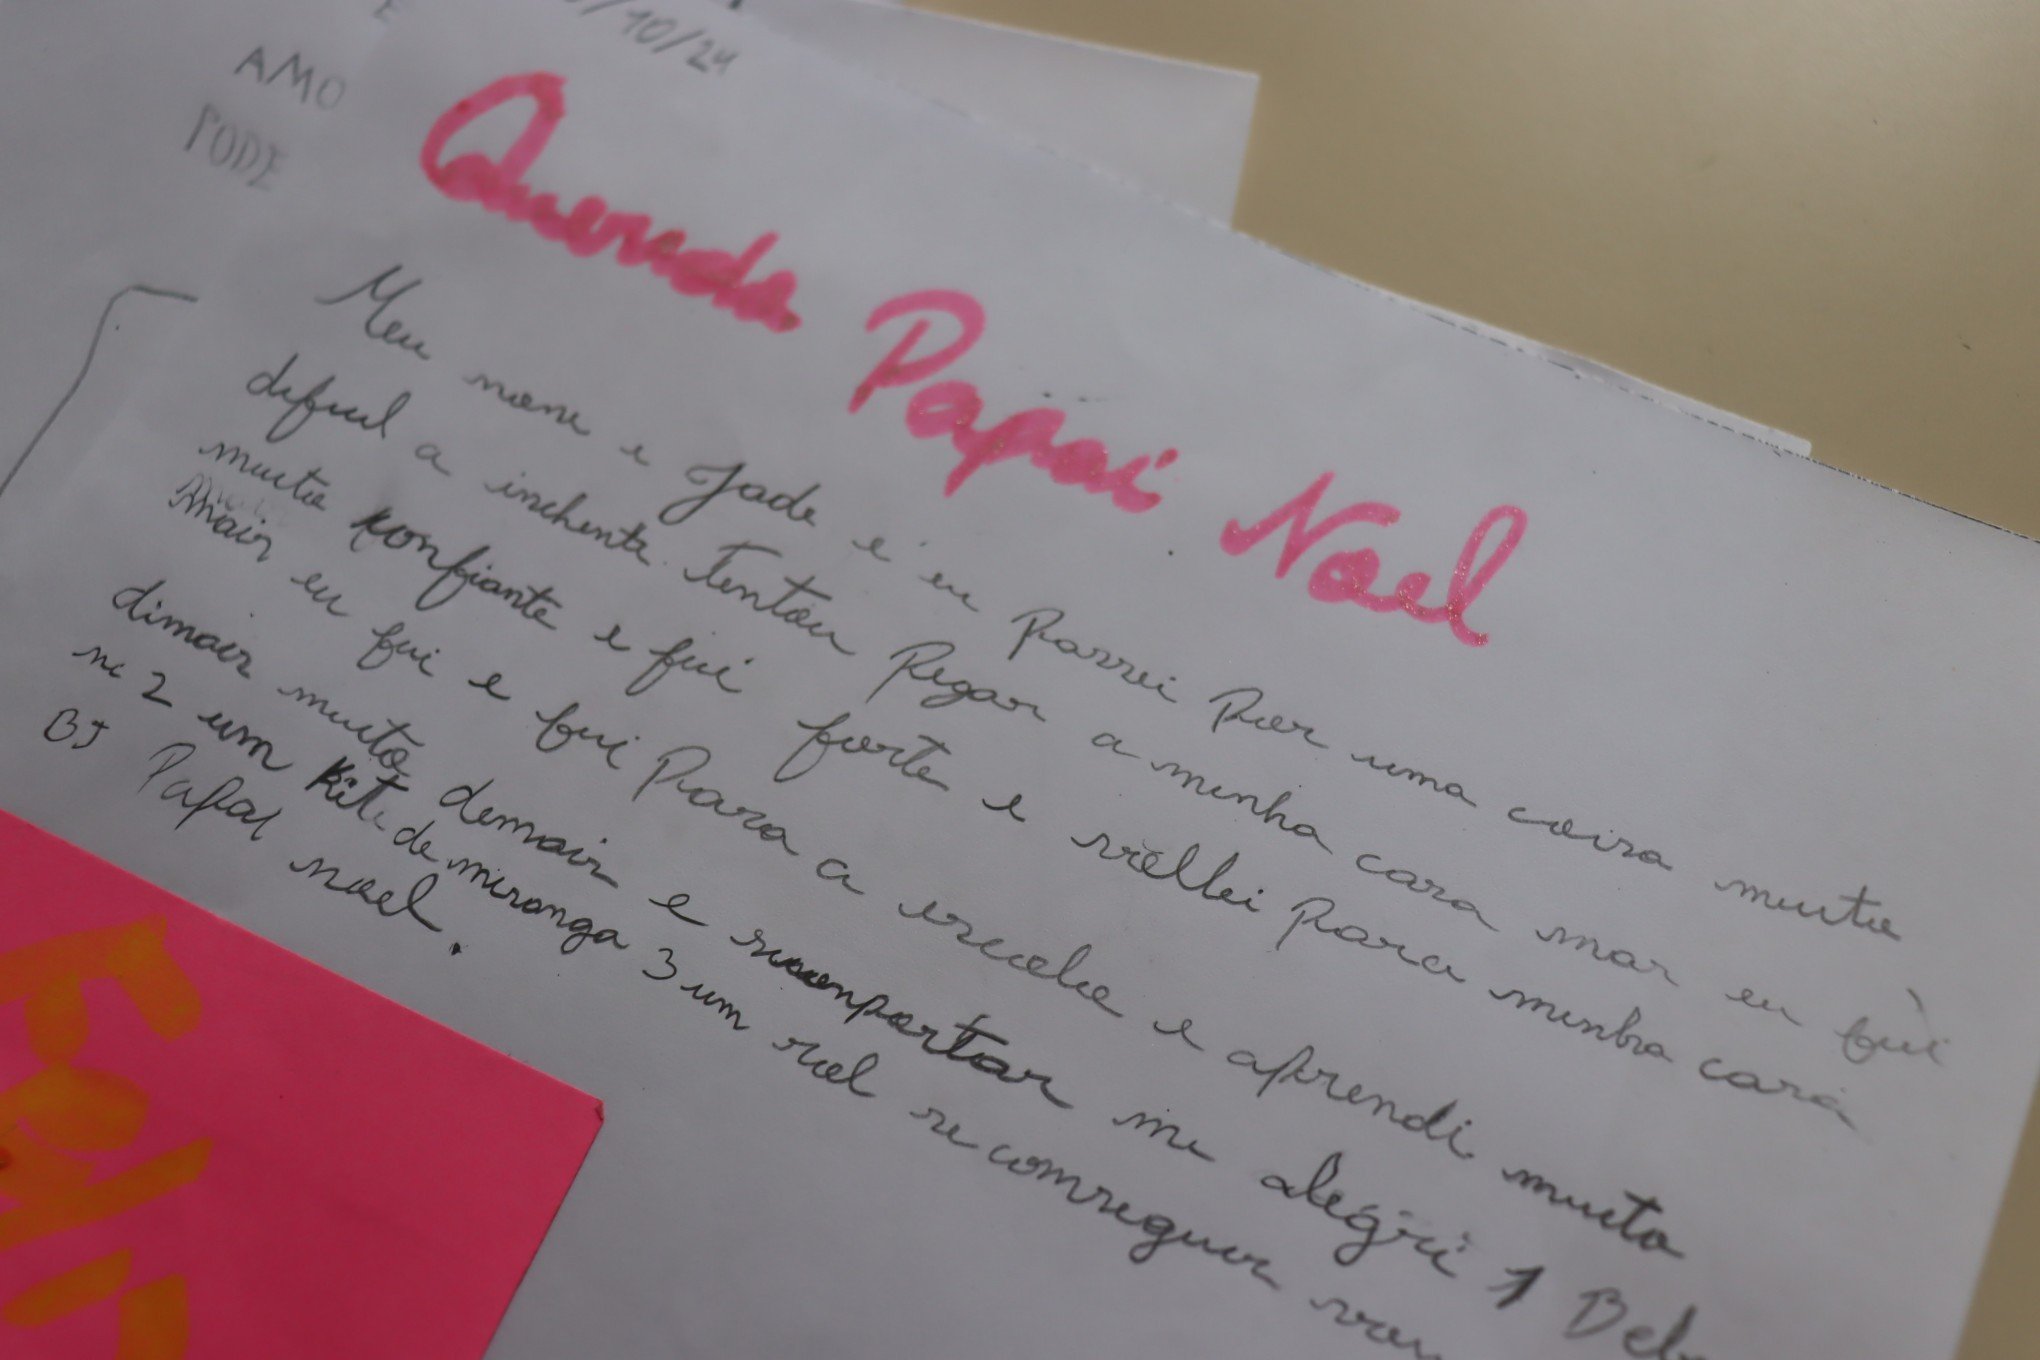 /10/24
AMO
PODE
Querido Papai Noel
Meu nome e Jade e eu Passei Por uma coisa muito
dificil a inchente Tentou Pegar a minha cara mas eu fui
muito confiante e fui forte e voltei Para minha cara
Mais eu fui e fui Para a escola e aprendi muito
dimais muito demais e me alegri 1 Beb
me 2 um Kite de miçanga 3 um cel se comseguir
BJ Papai noel.